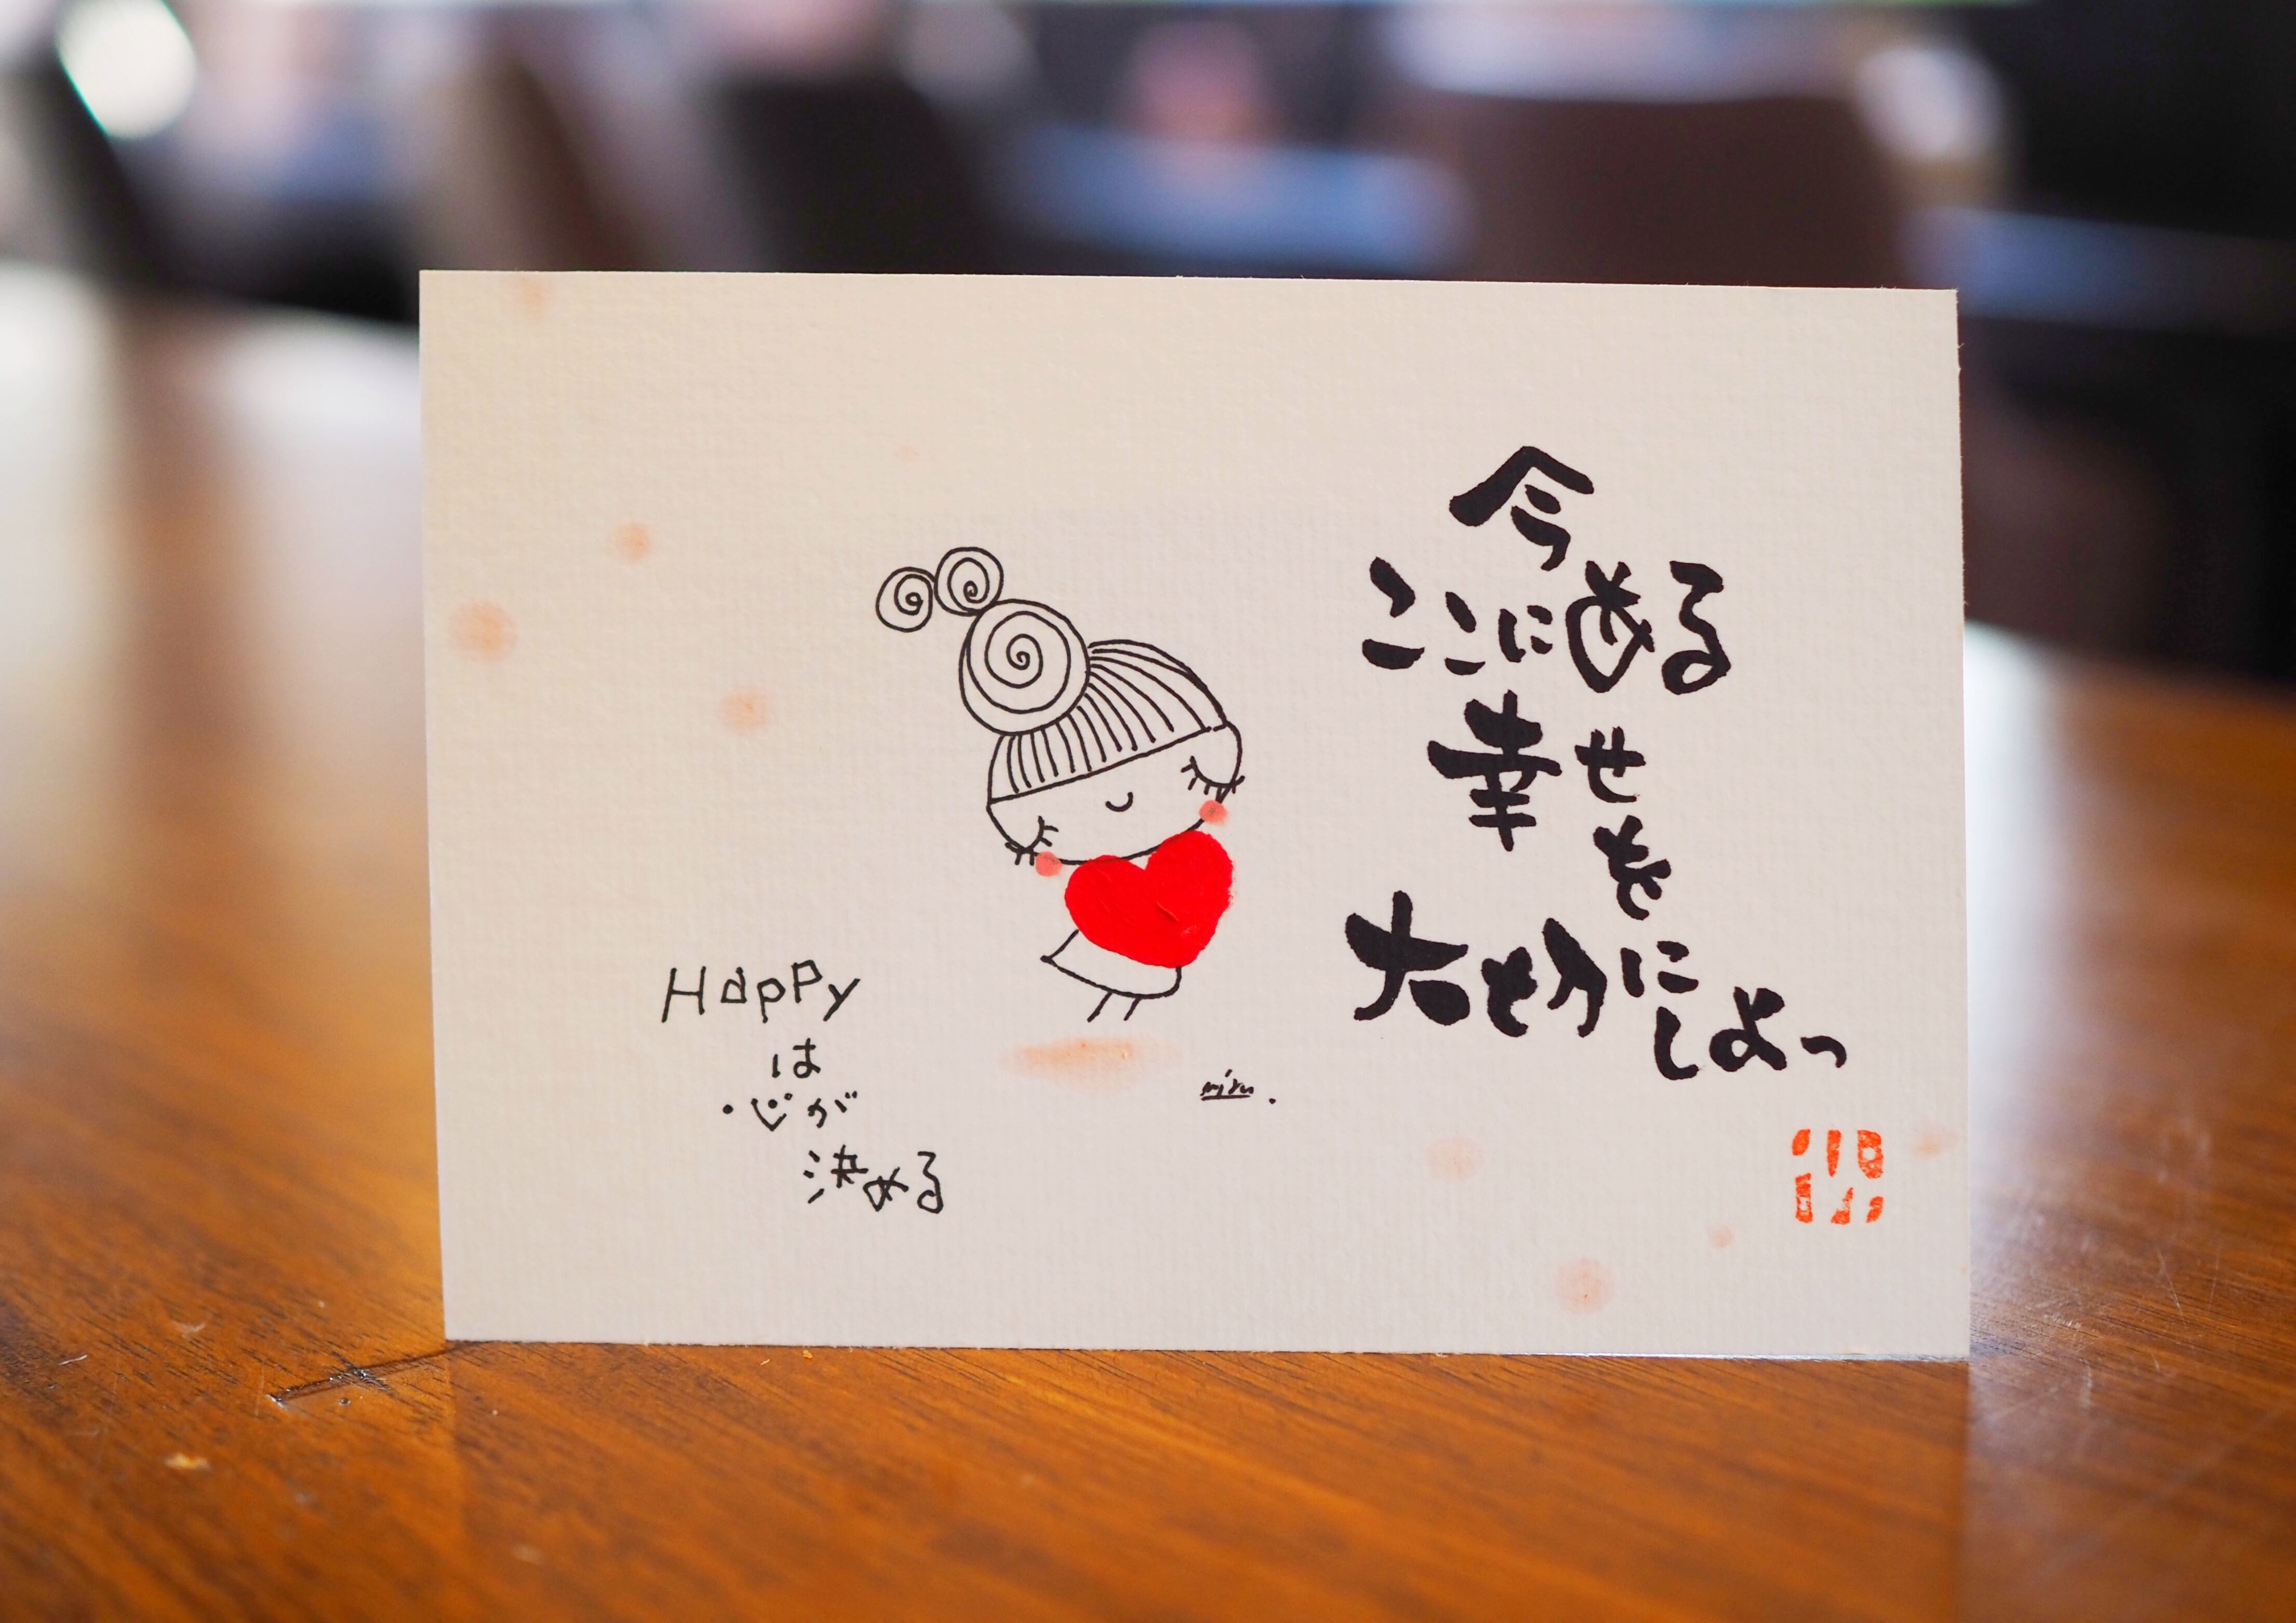 今
ここにある
幸せを
大切に
しよっ
Happy
は
心が
決める